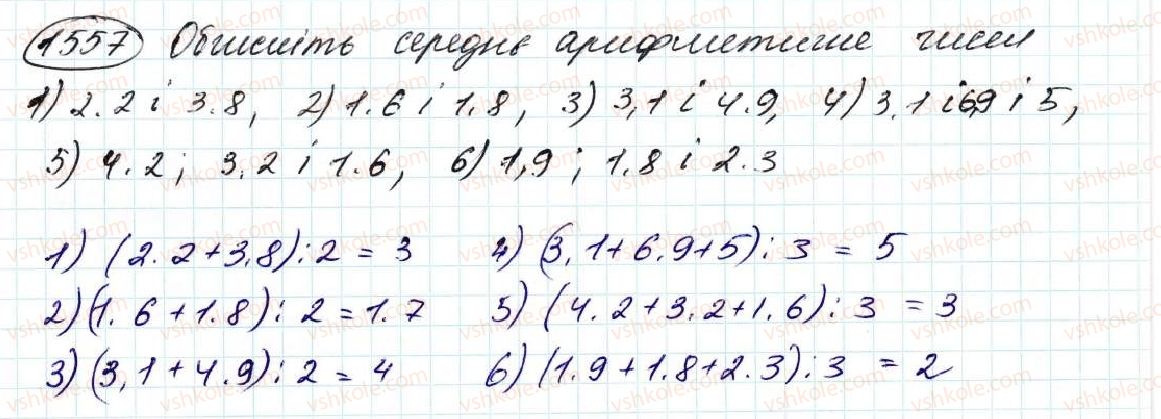 1557 Обчисліть середнє арифметичне чисел
1) 2.2 і 3.8, 2) 1.6 і 1.8, 3) 3,1 і 4.9, 4) 3.1 і 6,9 і 5,
5) 4.2; 3.2 і 1.6, 6) 1,9; 1.8 і 2.3
1) (2.2+3,8):2 = 3 4) (3,1+6.9+5):3 = 5
2) (1.6+1.8):2 = 1.7 5) (4.2+3.2+1,6):3 = 3
3) (3,1+4.9):2 = 4 6) (1.9+1.8+2.3):3 = 2
vshkole.com